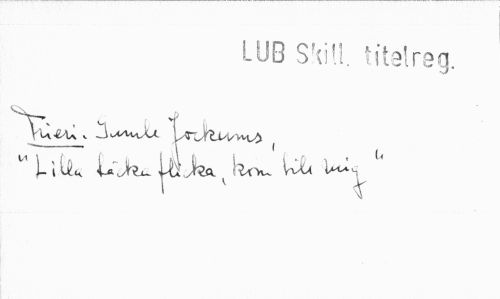 LUB Skill. titelreg.
Frieri. Gumle Jockums,
"Lilla täcka flicka, kom till mig"